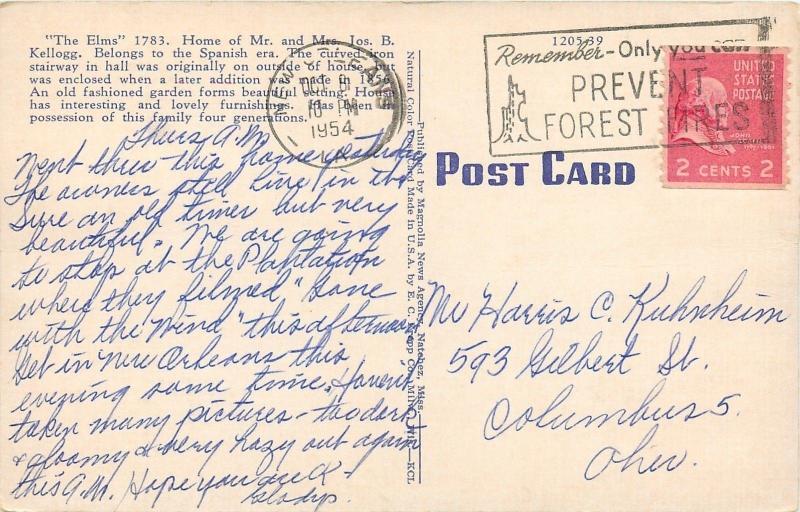 "The Elms" 1783. Home of Mr. and Mrs. Jos. B.
Kellogg. Belongs to the Spanish era. The curved iron
stairway in hall was originally on outside of house, but
was enclosed when a later addition was made in 1856.
An old fashioned garden forms beautiful setting. House
has interesting and lovely furnishings. Has been in
possession of this family four generations.
Thurs A.M.
Went thru this home yesterday
The owners still live in it
Sure an old timer but very
beautiful. We are going
to stop at the Plantation
where they filmed "Gone
with the Wind" this afternoon
Get in New Orleans this
evening some time. Haven't
taken many pictures - too dark
& gloomy & very hazy out again
this A.M. Hope you are O.K.
Gladys.
Published by Magnolia News Agency, Natchez, Miss.
Natural Color Post Card Made in U.S.A. by E. C. Kropp Co., Milwaukee, Wis.
KCL
1954
12053
Remember - Only you can
PREVENT
FOREST FIRES
UNITED
STATES
POSTAGE
JOHN
2 CENTS 2
POST CARD
Mr Harris C. Kuhnheim
593 Gilbert St.
Columbus 5.
Ohio.